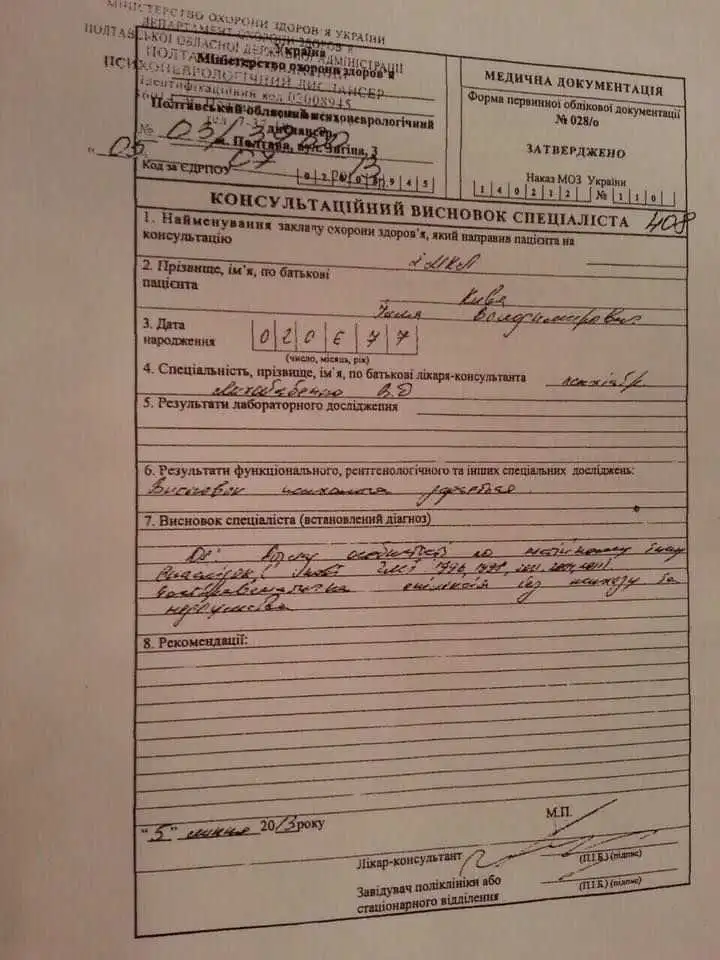 МІНІСТЕРСТВО ОХОРОНИ ЗДОРОВ'Я УКРАЇНИ
ДЕПАРТАМЕНТ ОХОРОНИ ЗДОРОВ'Я
ПОЛТАВСЬКОЇ ОБЛАСНОЇ ДЕРЖАВНОЇ АДМІНІСТРАЦІЇ
ПСИХОНЕВРОЛОГІЧНИЙ ДИСПАНСЕР
ідентифікаційний код 02008945
Україна
Міністерство охорони здоров'я
Полтавський обласний психоневрологічний
диспансер,
м. Полтава, вул.
№ 03/
"05" 07 2013
Код за ЄДРПОУ 02008945
МЕДИЧНА ДОКУМЕНТАЦІЯ
Форма первинної облікової документації
№ 028/о
ЗАТВЕРДЖЕНО
Наказ МОЗ України
140212 № 110
КОНСУЛЬТАЦІЙНИЙ ВИСНОВОК СПЕЦІАЛІСТА 408
1. Найменування закладу охорони здоров'я, який направив пацієнта на
консультацію МКЛ
2. Прізвище, ім'я, по батькові
пацієнта Кива
Ілля Володимирович
3. Дата
народження 020677
(число, місяць, рік)
4. Спеціальність, прізвище, ім'я, по батькові лікаря-консультанта психіатр
В.О
5. Результати лабораторного дослідження
6. Результати функціонального, рентгенологічного та інших спеціальних досліджень:
Висновок психолога
7. Висновок спеціаліста (встановлений діагноз)
DS: особистості по типу
ЧМТ 1996, 1998,
Посттравматична епілепсія без психозу та
недоумства
8. Рекомендації:
"5" липня 2013 року
М.П.
Лікар-консультант
(П.І.Б.) (підпис)
Завідувач поліклініки або
стаціонарного відділення
(П.І.Б.) (підпис)